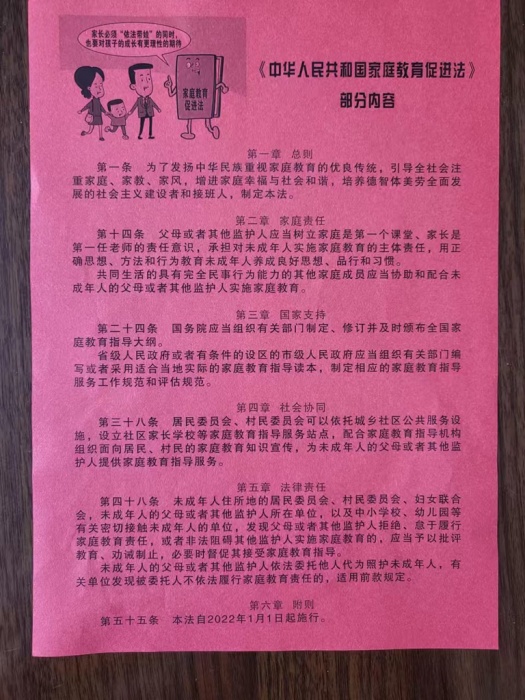 家长必须“依法带娃”的同时，
也要对孩子的成长有更理性的期待
家庭教育
促进法
《中华人民共和国家庭教育促进法》
部分内容
第一章 总则
第一条 为了发扬中华民族重视家庭教育的优良传统，引导全社会注
重家庭、家教、家风，增进家庭幸福与社会和谐，培养德智体美劳全面发
展的社会主义建设者和接班人，制定本法。
第二章 家庭责任
第十四条 父母或者其他监护人应当树立家庭是第一个课堂、家长是
第一任老师的责任意识，承担对未成年人实施家庭教育的主体责任，用正
确思想、方法和行为教育未成年人养成良好思想、品行和习惯。
共同生活的具有完全民事行为能力的其他家庭成员应当协助和配合未
成年人的父母或者其他监护人实施家庭教育。
第三章 国家支持
第二十四条 国务院应当组织有关部门制定、修订并及时颁布全国家
庭教育指导大纲。
省级人民政府或者有条件的设区的市级人民政府应当组织有关部门编
写或者采用适合当地实际的家庭教育指导读本，制定相应的家庭教育指导
服务工作规范和评估规范。
第四章 社会协同
第三十八条 居民委员会、村民委员会可以依托城乡社区公共服务设
施，设立社区家长学校等家庭教育指导服务站点，配合家庭教育指导机构
组织面向居民、村民的家庭教育知识宣传，为未成年人的父母或者其他监
护人提供家庭教育指导服务。
第五章 法律责任
第四十八条 未成年人住所地的居民委员会、村民委员会、妇女联合
会，未成年人的父母或者其他监护人所在单位，以及中小学校、幼儿园等
有关密切接触未成年人的单位，发现父母或者其他监护人拒绝、怠于履行
家庭教育责任，或者非法阻碍其他监护人实施家庭教育的，应当予以批评
教育、劝诫制止，必要时督促其接受家庭教育指导。
未成年人的父母或者其他监护人依法委托他人代为照护未成年人，有
关单位发现被委托人不依法履行家庭教育责任的，适用前款规定。
第六章 附则
第五十五条 本法自2022年1月1日起施行。